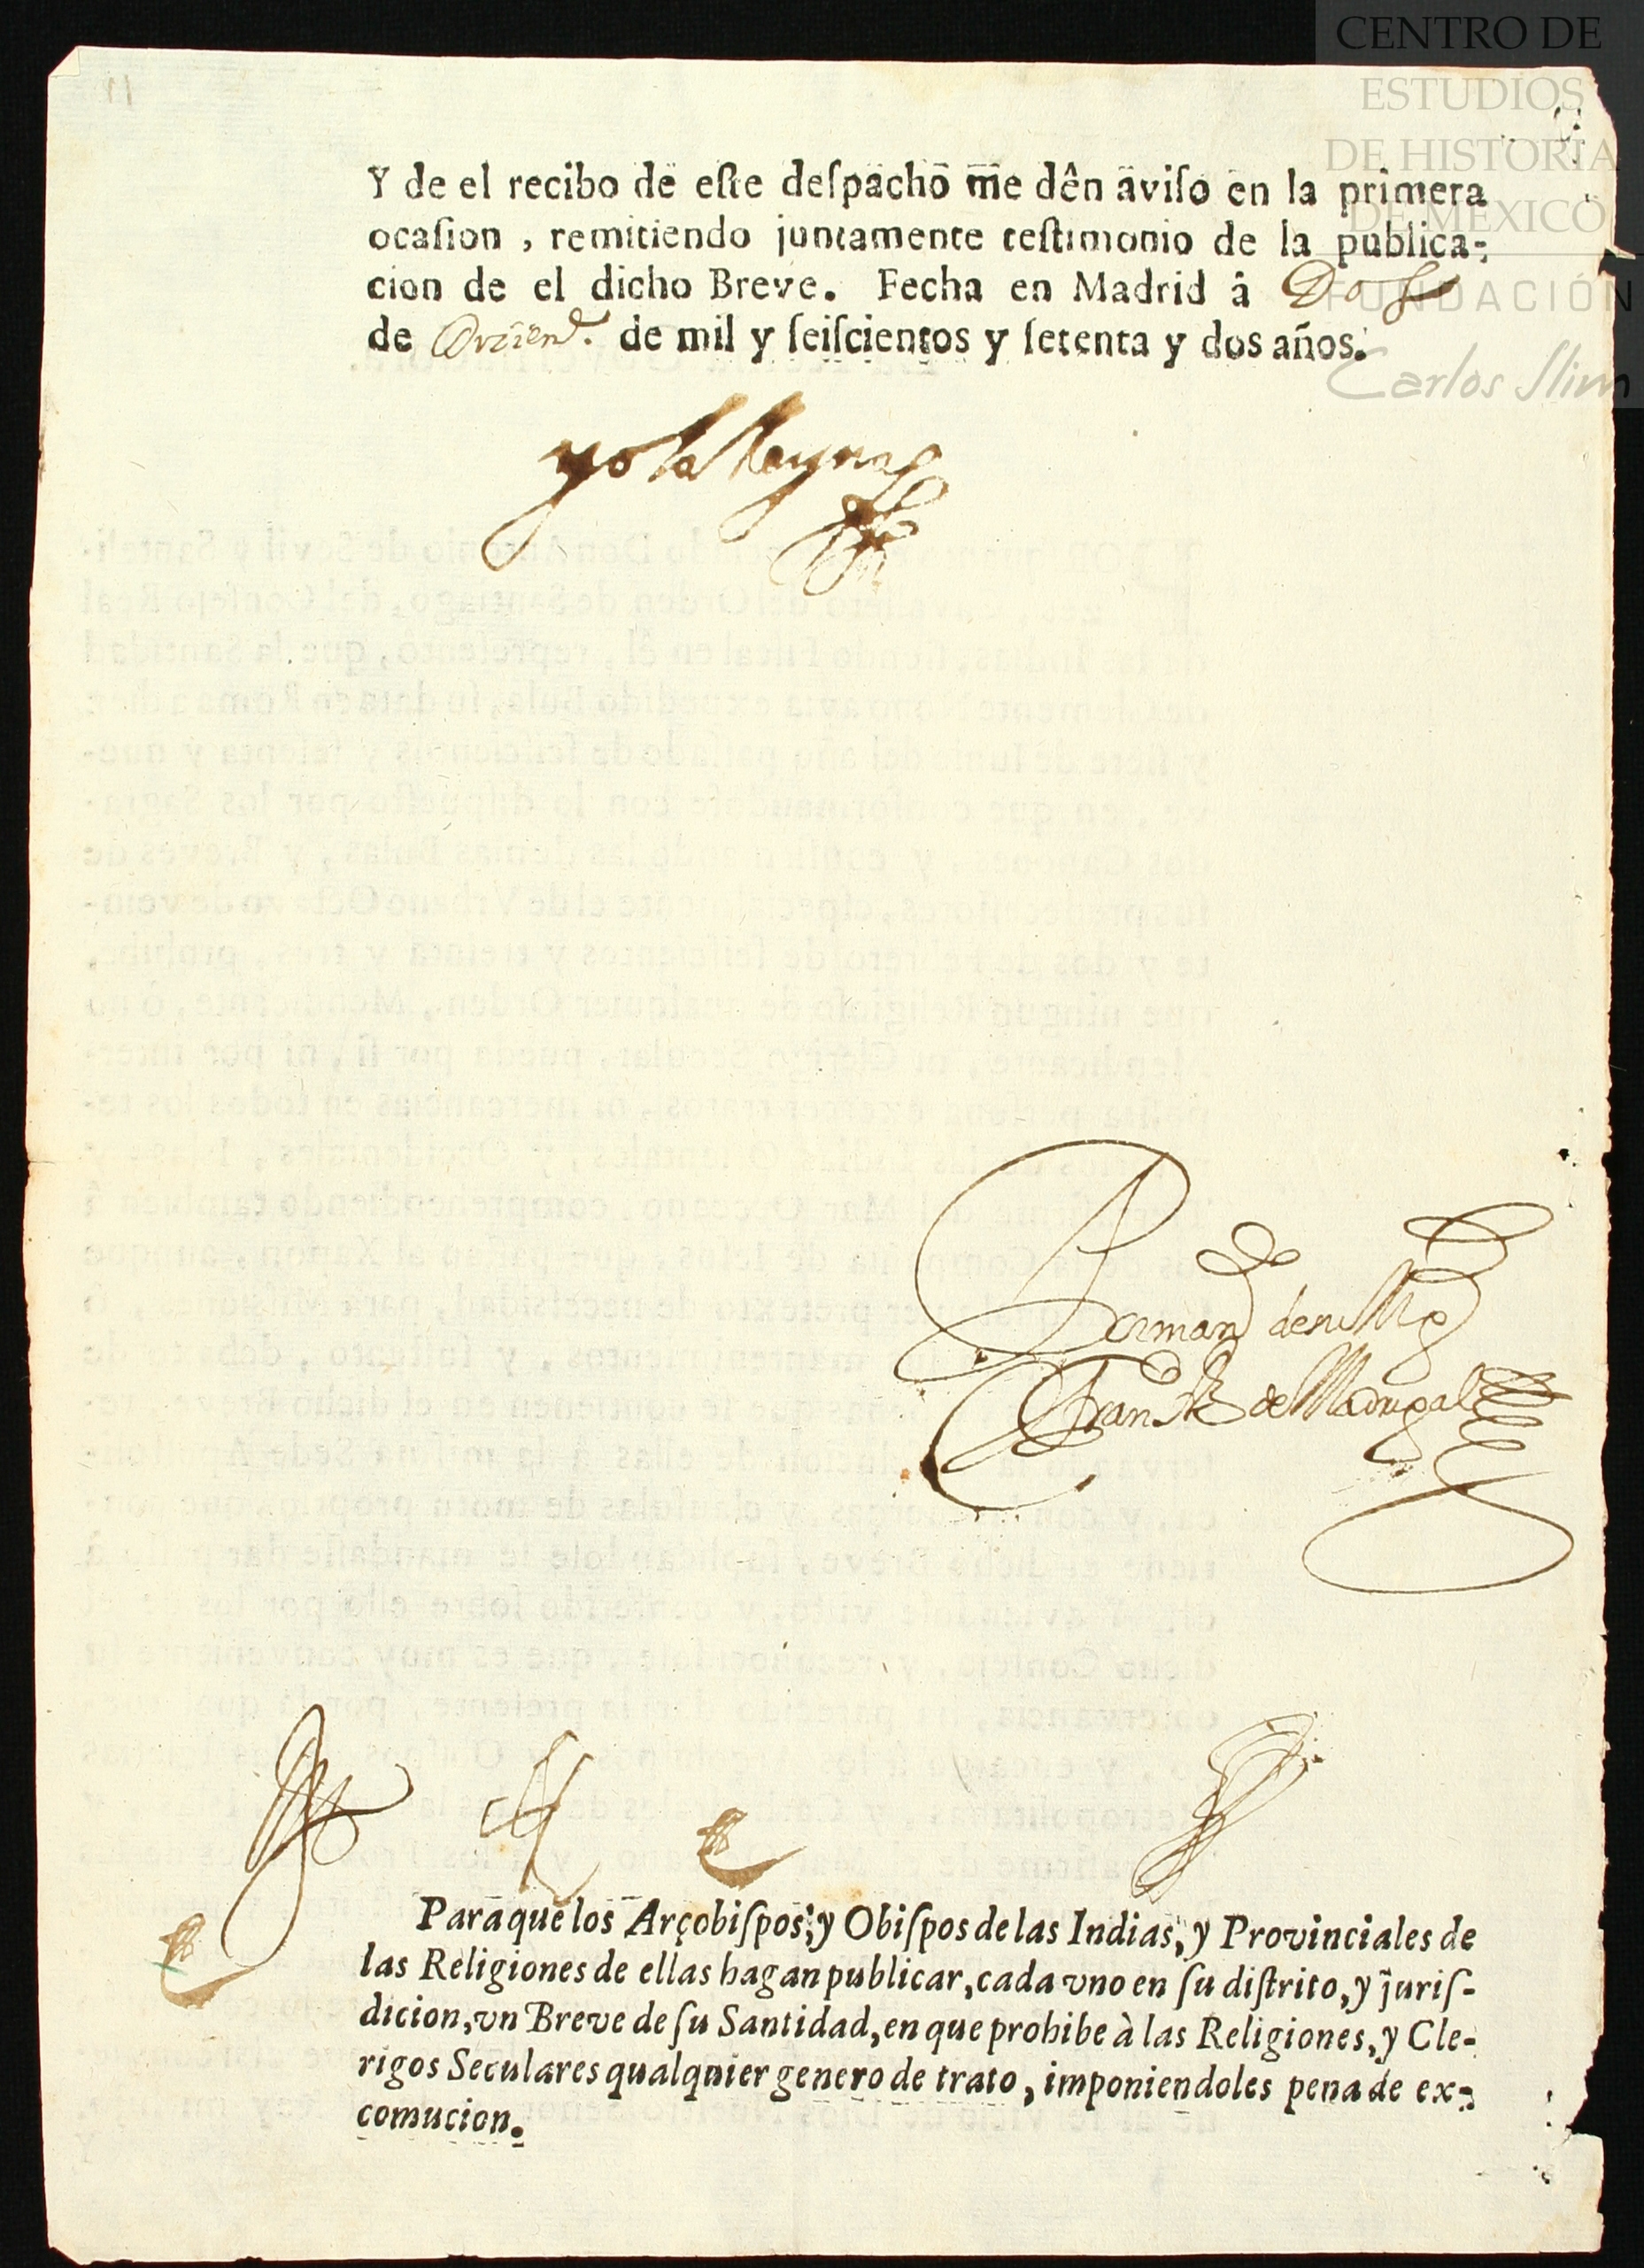 CENTRO DE
ESTUDIOS
DE HISTORIA
DE MEXICO
FUNDACIÓN
Carlos Slim
11
Y de el recibo de eſte deſpacho me dên aviſo en la primera
ocaſion, remitiendo juntamente teſtimonio de la publica-
cion de el dicho Breve. Fecha en Madrid â Dos
de de mil y ſeiſcientos y ſetenta y dos años.
yo la Reyna
Por mandº de su Mgd
Franco frz de Madrigal
Para que los Arçobiſpos, y Obiſpos de las Indias, y Provinciales de
las Religiones de ellas hagan publicar, cada vno en ſu diſtrito, y juriſ-
dicion, vn Breve de ſu Santidad, en que prohibe à las Religiones, y Cle-
rigos Seculares qualquier genero de trato, imponiendoles pena de ex-
comucion.